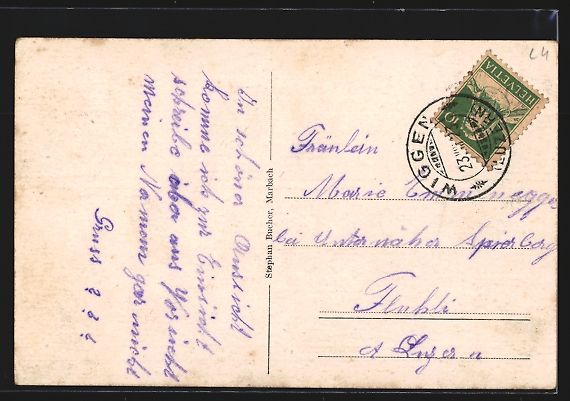 In schöner Aussicht
komme ich zur Einsicht
schreibe aber aus Vorsicht
meinen Namen gar nicht
Gruss ? ? ?
Stephan Bucher, Marbach
HELVETIA
10
WIGGEN
(LUZERN)
23. VIII
Fräulein
Marie
bei Unternäher
Flühli
Kt Luzern